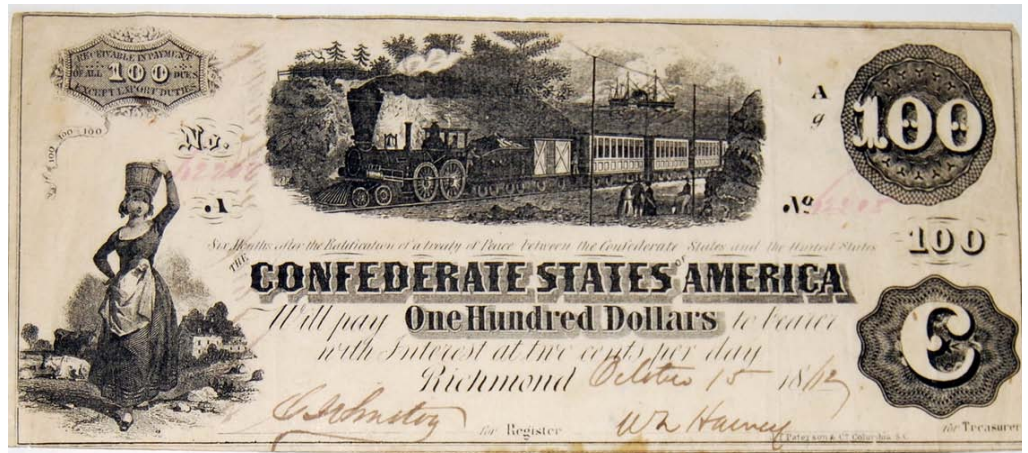 RECEIVABLE IN PAYMENT
OF ALL 100 DUES
EXCEPT EXPORT DUTIES
100 100 100
No.
.1
A
g
100
No
100
Six Months after the Ratification of a treaty of Peace between the Confederate States and the United States
THE
CONFEDERATE STATES OF AMERICA
Will pay One Hundred Dollars to bearer
with Interest at two cents per day
Richmond October 15 1862
C
for Register
for Treasurer
& Co Columbia S.C.